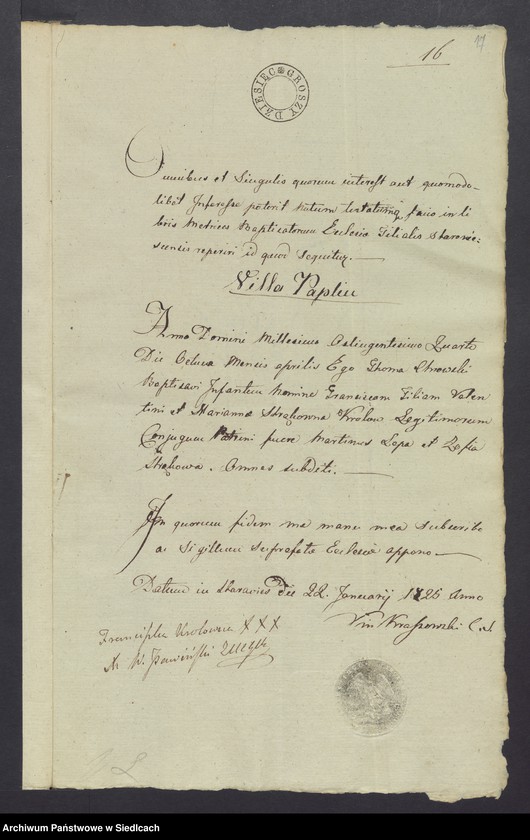 16
17
DZIESIĘC GROSZY
Omnibus et Singulis quorum interest aut quomodo-
libet Interesse poterit Notum testatumq facio in li
bris Metrices Baptisatorum Eclesiæ Filialis
reperiri id quod Sequitur.
Villa Paplin
Anno Domini Millesimo Octingentesimo Quarto
Die Octava Mensis aprilis Ego Thoma
Baptisavi Infantem Nomine Franciscam Filiam Valen
tini et Marianna Krolow Legitimorum
Conjugum Patrini fuere Martinus Lepa et Zofia
Omnes subditi.
In quorum fidem me manu mea Subscribo
a Sigillum Suprafatæ Ecclesiæ appono
Datum in die 22 Januarij 1825 Anno
Franciszka Krolowna XXX
L
Archiwum Państwowe w Siedlcach